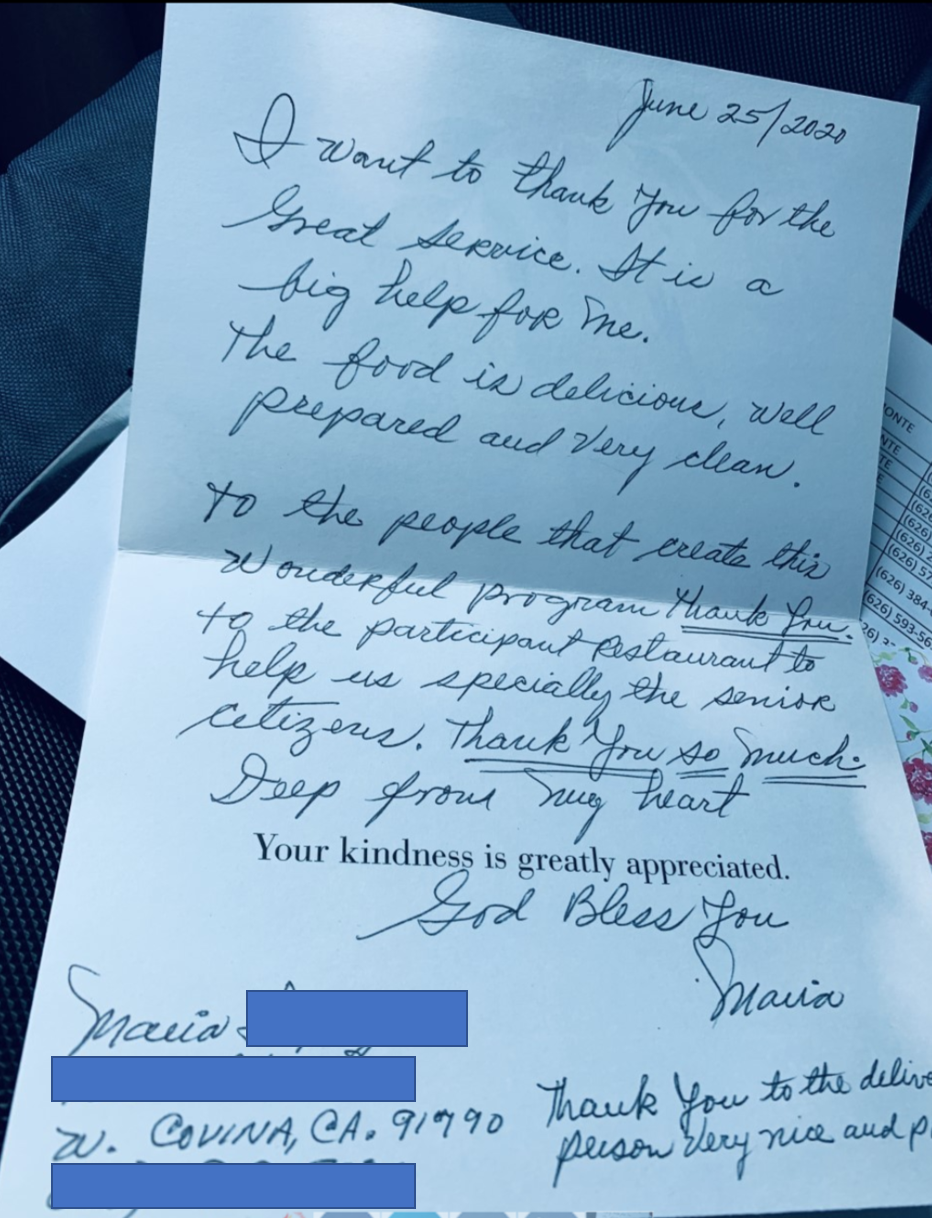 June 25/2020
I want to thank you for the
Great service. It is a
big help for me.
The food is delicious, well
prepared and very clean.
To the people that create this
wonderful program thank you.
to the participant restaurant to
help us specially the senior
citizens. Thank You so much.
Deep from my heart
Your kindness is greatly appreciated.
God Bless You
Maria
Maria
W. COVINA, CA. 91790
Thank You to the delive
person very nice and p
ONTE
NTE
TE
(626) 57
(626) 384-
(626) 593-56